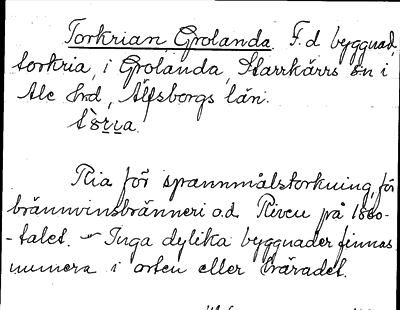 Torkrian, Grolanda. F.d byggnad,
torkria, i Grolanda, Starrkärrs sn i
Ale hrd, Älfsborgs län.
Ria för spannmålstorkning, för
brännvinsbränneri o.d. Riven på 1860-
-talet. – Inga dylika byggnader finnas
numera i orten eller häradet.